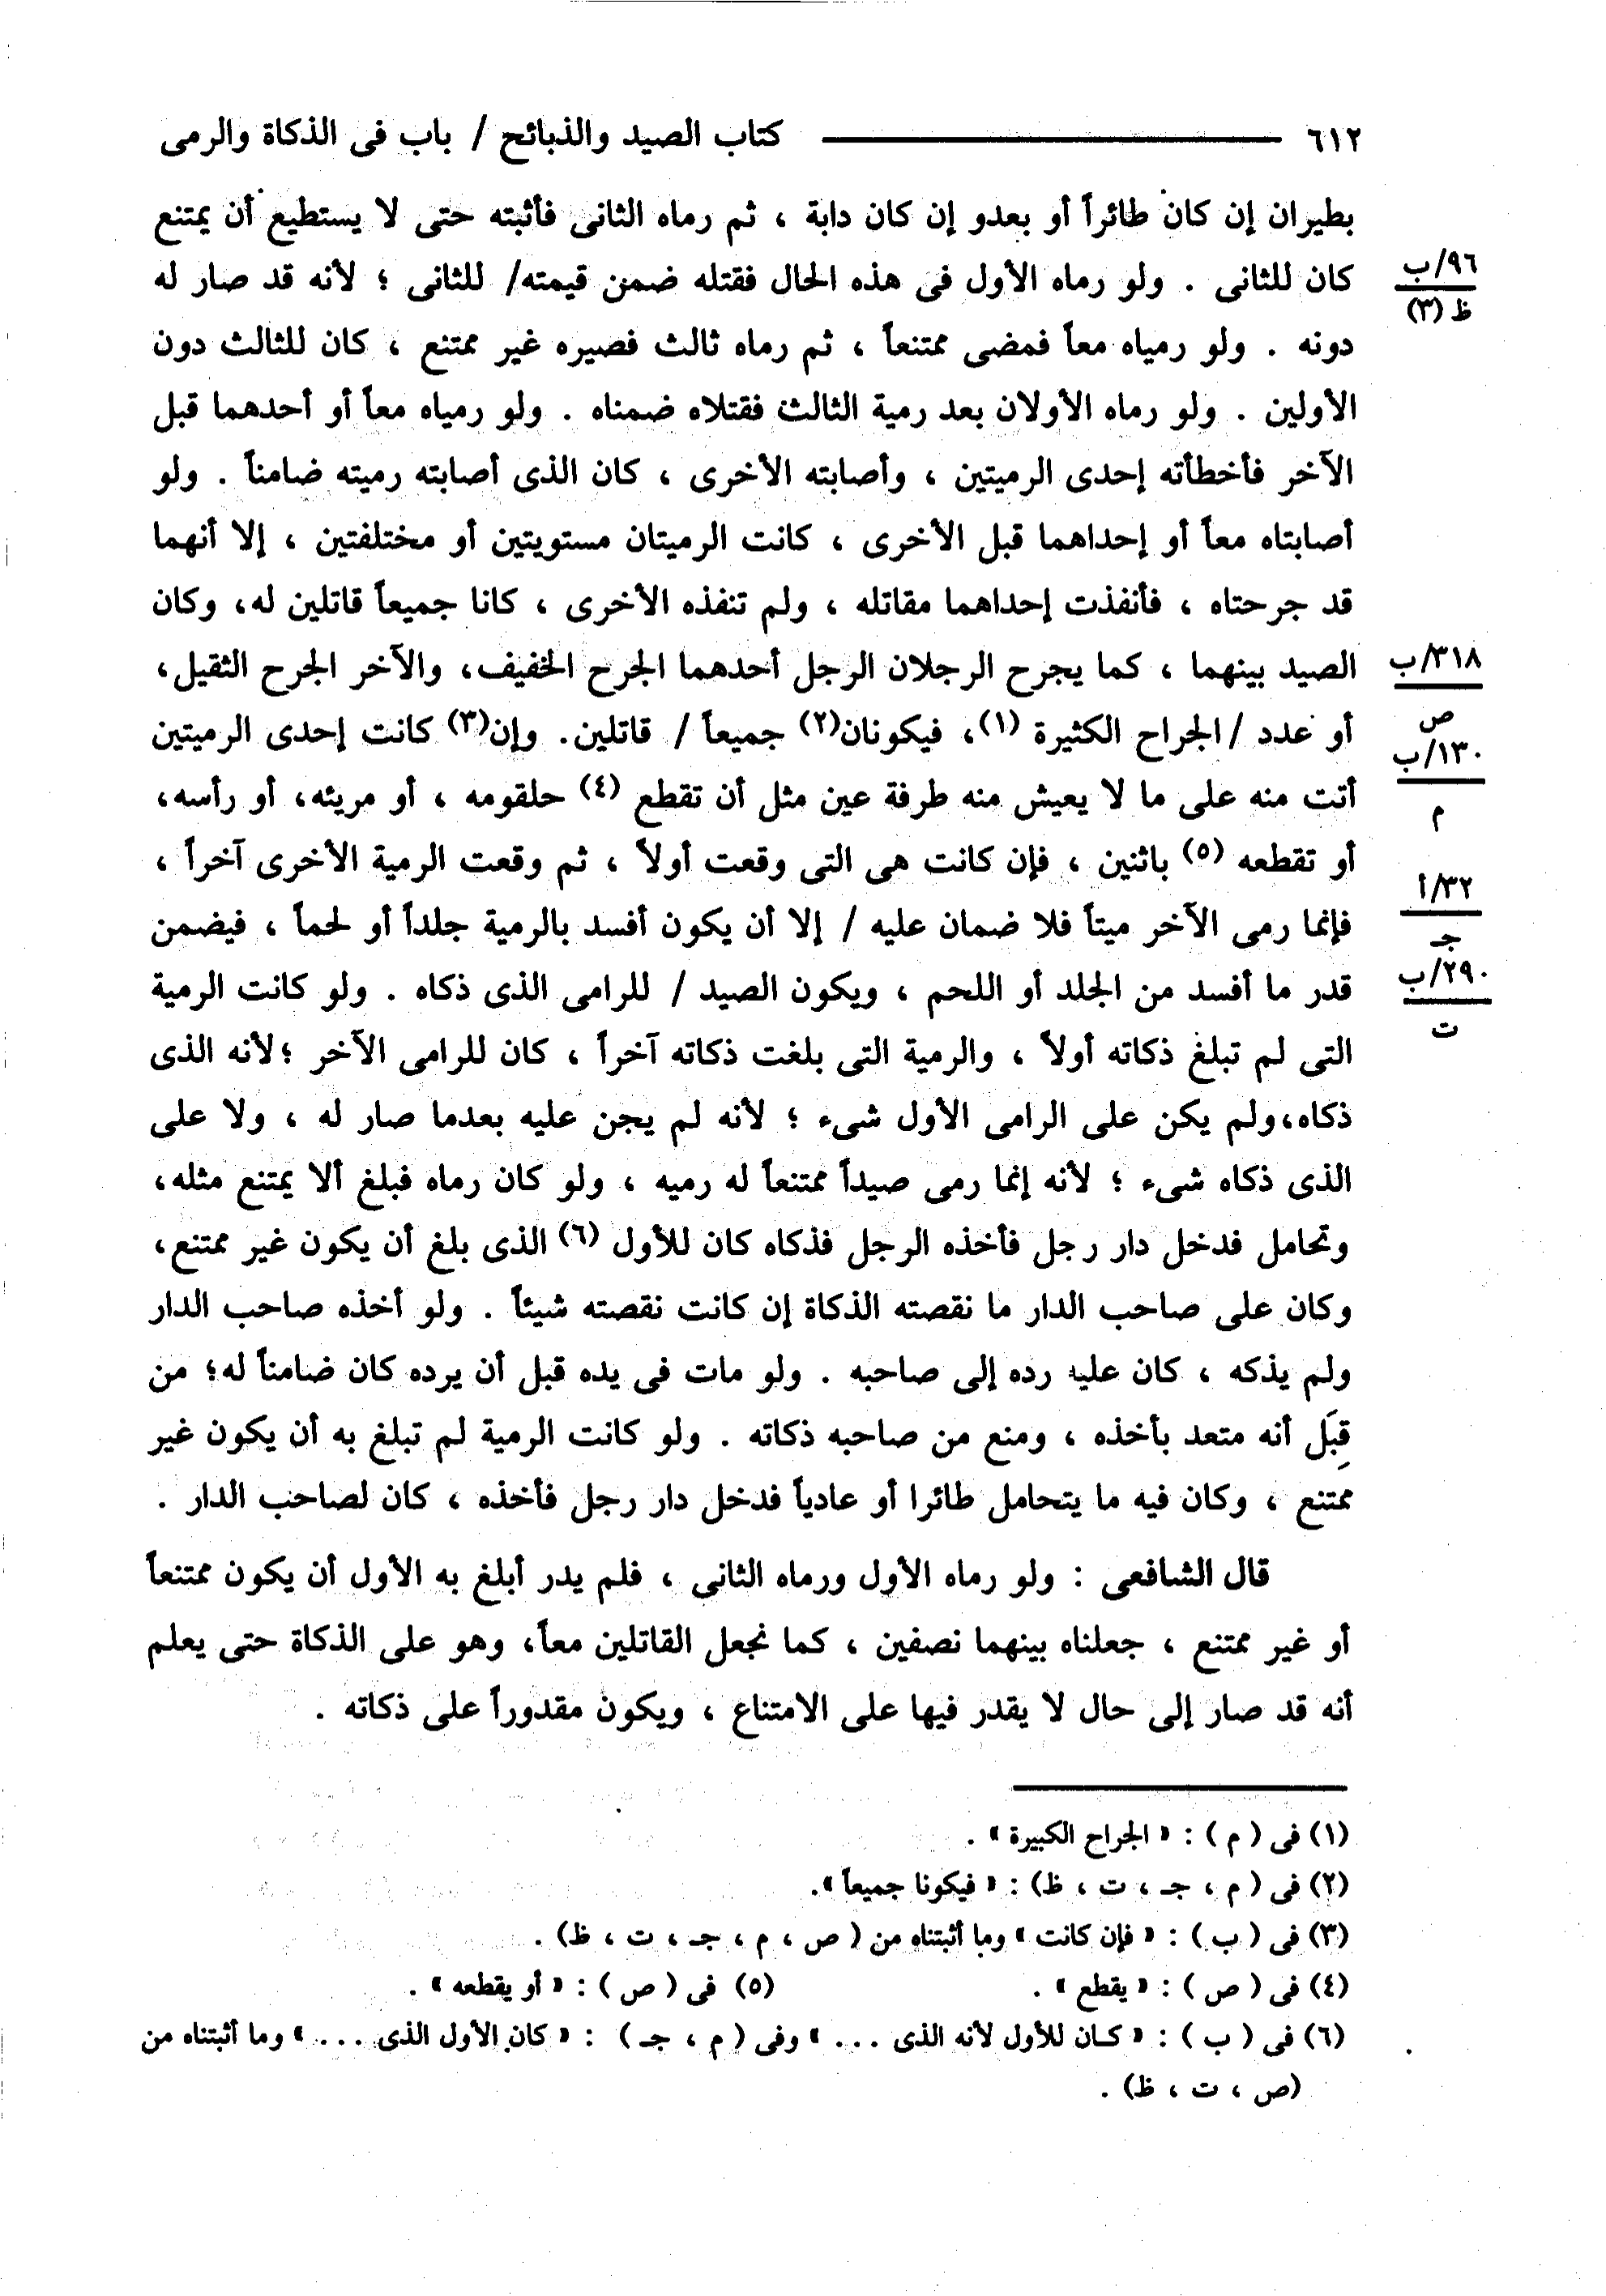 ٦١٢ كتاب الصيد والذبائح / باب فى الذكاة والرمى
بطيران إن كان طائراً أو بعدو إن كان دابة ، ثم رماه الثانى فأثبته حتى لا يستطيع أن يمتنع
كان للثانى . ولو رماه الأول فى هذه الحال فقتله ضمن قيمته/ للثانى ؛ لأنه قد صار له
٩٦/ب
ظ (٣)
دونه . ولو رمياه معاً فمضى ممتنعاً ، ثم رماه ثالث فصيره غير ممتنع ، كان للثالث دون
الأولين . ولو رماه الأولان بعد رمية الثالث فقتلاه ضمناه . ولو رمياه معاً أو أحدهما قبل
الآخر فأخطأته إحدى الرميتين ، وأصابته الأخرى ، كان الذى أصابته رميته ضامناً . ولو
أصابتاه معاً أو إحداهما قبل الأخرى ، كانت الرميتان مستويتين أو مختلفتين ، إلا أنهما
قد جرحتاه ، فأنفذت إحداهما مقاتله ، ولم تنفذه الأخرى ، كانا جميعاً قاتلين له، وكان
الصيد بينهما ، كما يجرح الرجلان الرجل أحدهما الجرح الخفيف، والآخر الجرح الثقيل،
٣١٨/ب
ص
أو عدد /الجراح الكثيرة (١)، فيكونان(٢) جميعاً / قاتلين. وإن(٣) كانت إحدى الرميتين
١٣٠/ب
م
أتت منه على ما لا يعيش منه طرفة عين مثل أن تقطع (٤) حلقومه ، أو مريئه، أو رأسه،
أو تقطعه (٥) باثنين ، فإن كانت هى التى وقعت أولاً ، ثم وقعت الرمية الأخرى آخراً ،
٣٢/أ
جـ
فإنما رمى الآخر ميتاً فلا ضمان عليه / إلا أن يكون أفسد بالرمية جلداً أو لحماً ، فيضمن
قدر ما أفسد من الجلد أو اللحم ، ويكون الصيد / للرامى الذى ذكاه . ولو كانت الرمية
٢٩٠/ب
ت
التى لم تبلغ ذكاته أولاً ، والرمية التى بلغت ذكاته آخراً ، كان للرامى الآخر ؛لأنه الذى
ذكاه،ولم يكن على الرامى الأول شىء ؛ لأنه لم يجن عليه بعدما صار له ، ولا على
الذى ذكاه شىء ؛ لأنه إنما رمى صيداً ممتنعاً له رميه ، ولو كان رماه فبلغ ألا يمتنع مثله،
وتحامل فدخل دار رجل فأخذه الرجل فذكاه كان للأول (٦) الذى بلغ أن يكون غير ممتنع،
وكان على صاحب الدار ما نقصته الذكاة إن كانت نقصته شيئاً . ولو أخذه صاحب الدار
ولم يذكه ، كان عليه رده إلى صاحبه . ولو مات فى يده قبل أن يرده كان ضامناً له؛ من
قِبَل أنه متعد بأخذه ، ومنع من صاحبه ذكاته . ولو كانت الرمية لم تبلغ به أن يكون غير
ممتنع ، وكان فيه ما يتحامل طائرا أو عادياً فدخل دار رجل فأخذه ، كان لصاحب الدار .
قال الشافعى : ولو رماه الأول ورماه الثانى ، فلم يدر أبلغ به الأول أن يكون ممتنعاً
أو غير ممتنع ، جعلناه بينهما نصفين ، كما نجعل القاتلين معاً، وهو على الذكاة حتى يعلم
أنه قد صار إلى حال لا يقدر فيها على الامتناع ، ويكون مقدوراً على ذكاته .
(١) فى ( م ) : « الجراح الكبيرة » .
(٢) فى ( م ، جـ ، ت ، ظ) : « فيكونا جميعاً ».
(٣) فى ( ب ) : « فإن كانت » وما أثبتناه من ( ص ، م ، جـ ، ت ، ظ) .
(٤) فى ( ص ) : « يقطع » . (٥) فى ( ص ) : « أو يقطعه » .
(٦) فى ( ب ) : « كـان للأول لأنه الذى ... » وفى ( م ، جـ ) : « كان الأول الذى ... » وما أثبتناه من
(ص ، ت ، ظ) .